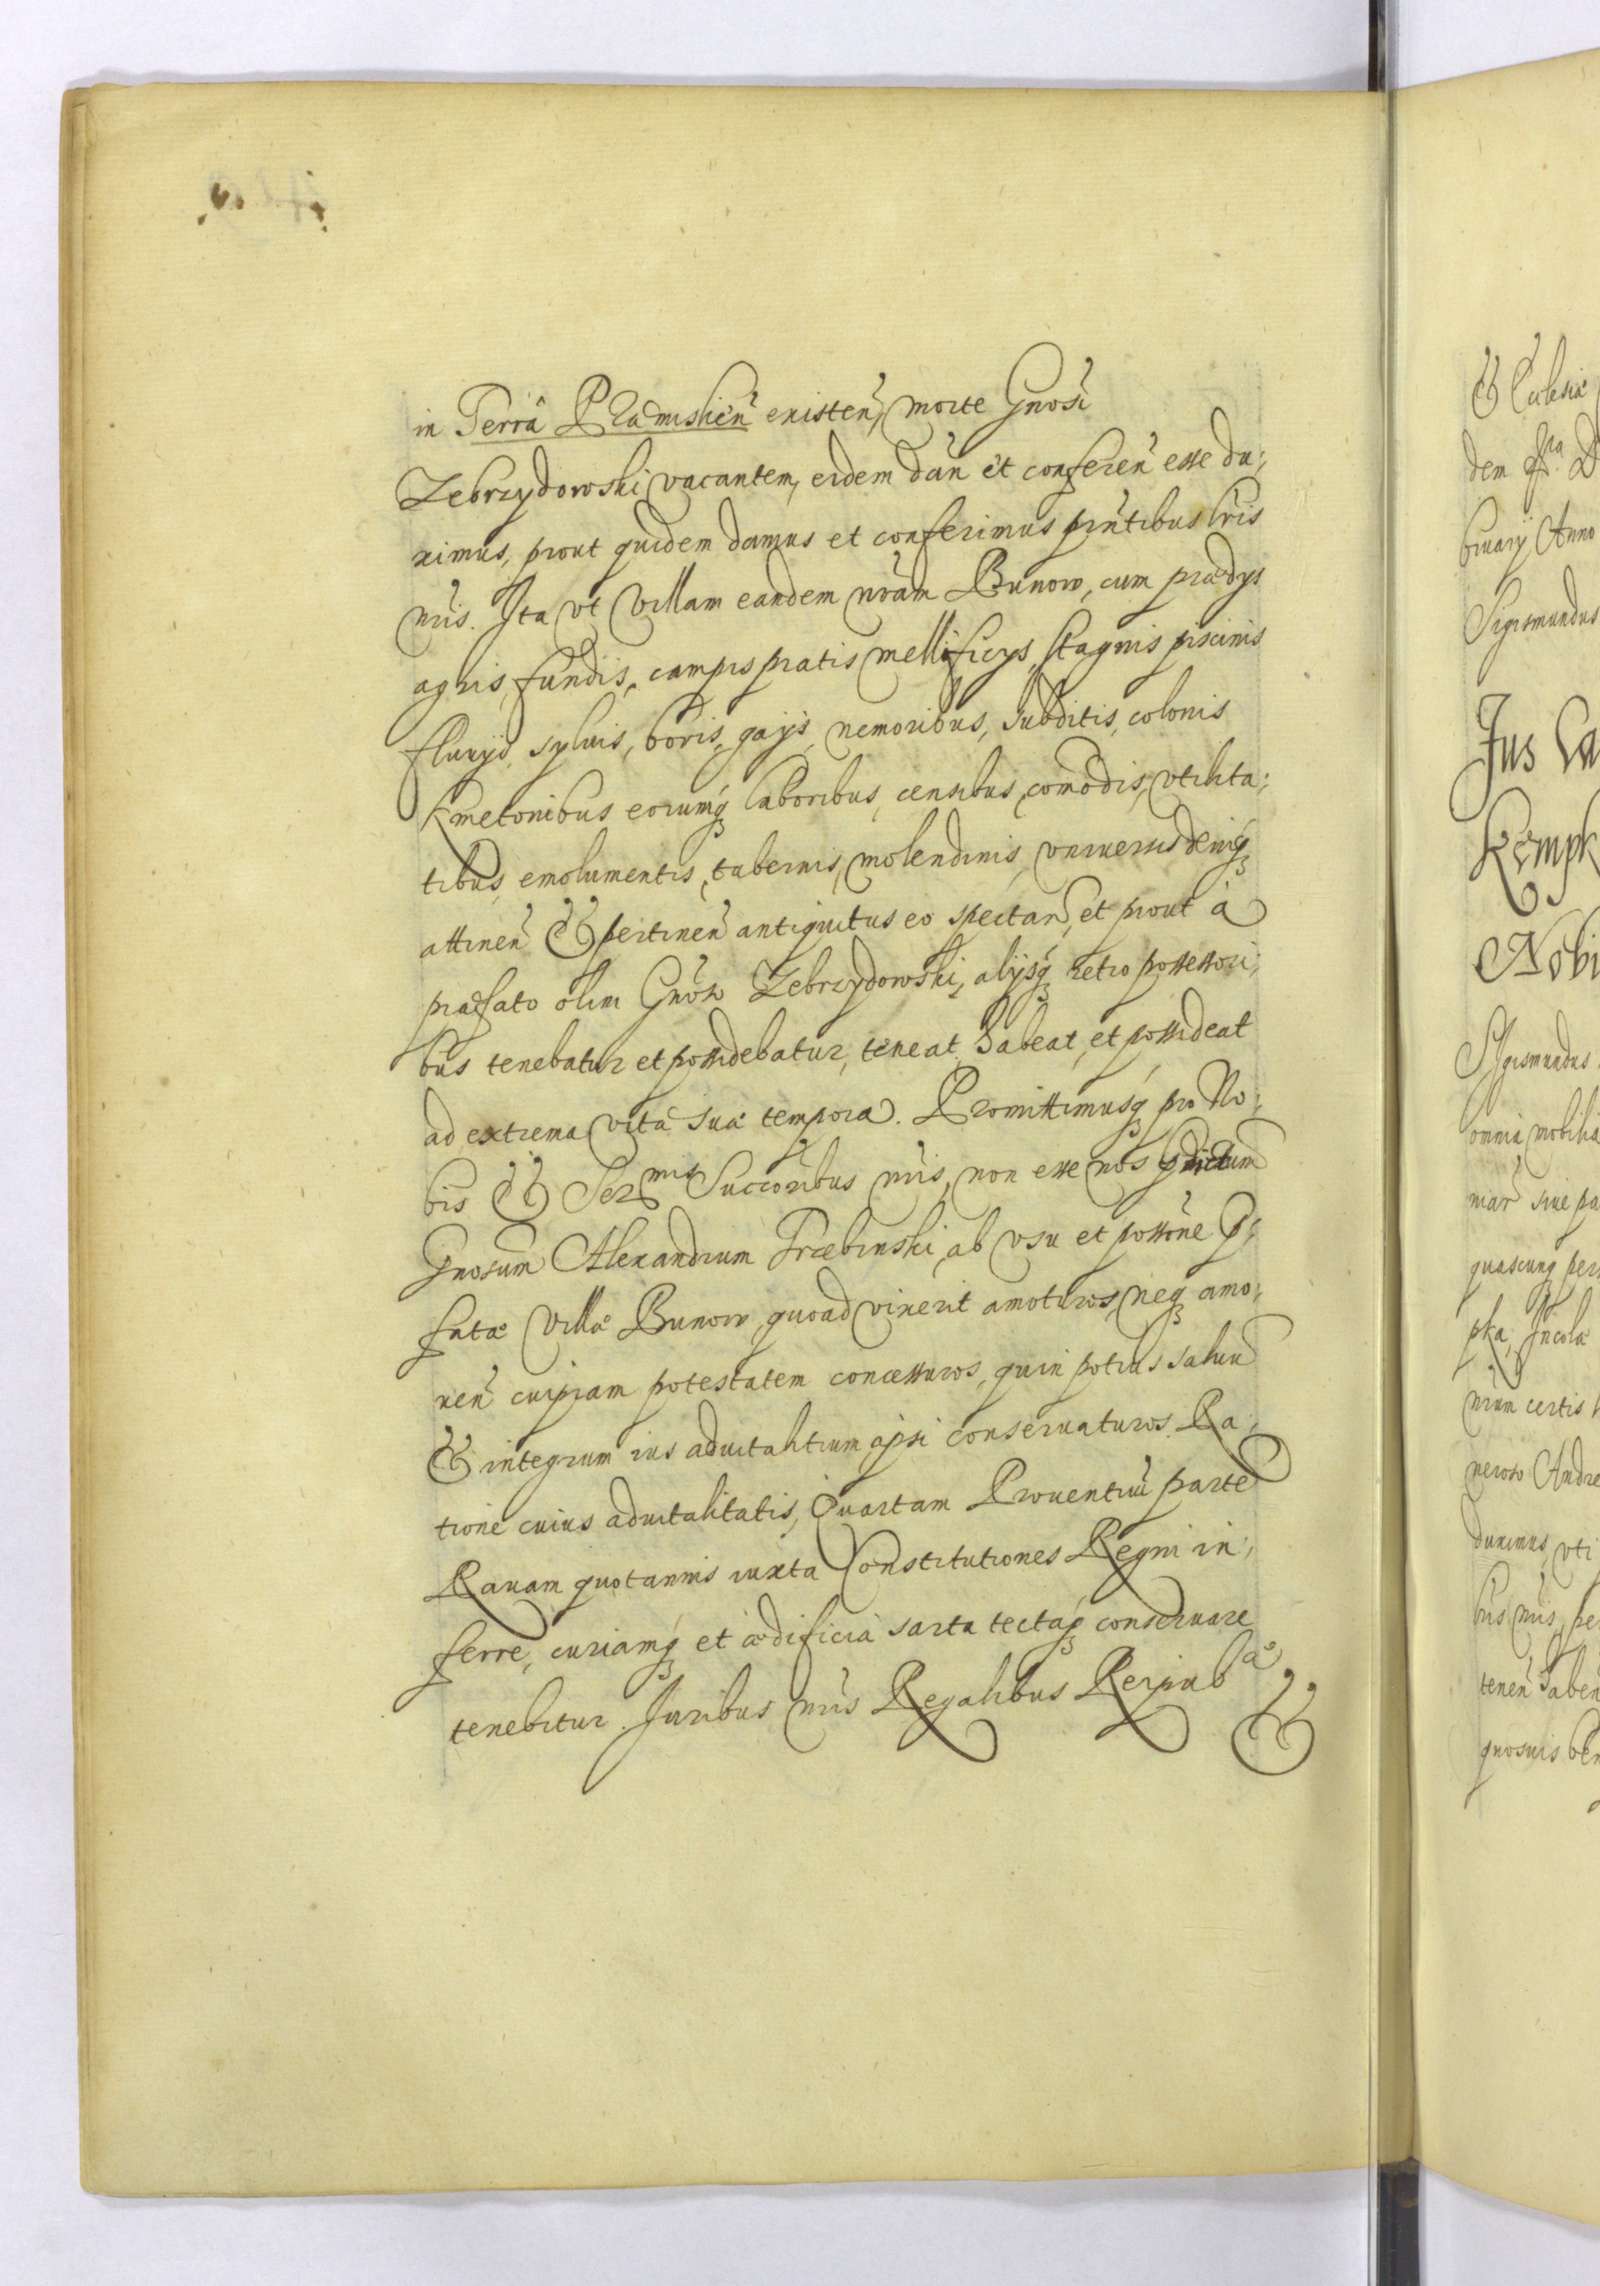 in Terrâ Præmislien̄ existen̄, morte Gnosi
Zebrzydowski vacantem, eidem dan̄ et conferen̄ esse du:
ximus, prout quidem damus et conferimus pn̄tibus lr̄is
nr̄is. Ita vt Villam eandem nr̄am Bunow, cum prædys
agris, fundis, campis pratis mellificys, stagnis piscinis
fluuys, syluis, boris, gays, nemoribus, subditis, colonis
kmetonibus eorumq́ laboribus, censibus, com̄odis, vtilita:
tibus, emolumentis, tabernis, molendinis, vniuersis deniq́
attinen̄ & pertinen̄ antiquitus eo spectan̄, et prout à
præfato olim Gnoso Zebrzydowski, alysq́ retro possessori:
bus tenebatur et possidebatur, teneat habeat, et possideat
ad extrema vitæ suæ tempora. Promittimusq́ pro No:
bis & Ser^mis Succoribus nr̄is, non esse nos
Gnosum Alexandrum Træbinski, ab vsu et possōne p̄:
fatæ Villæ Bunow, quoad vixerit amoturos, neq́ amo:
uen̄ cuipiam potestatem concessuros, quin potius saluū
& integrum ius aduitalitium, ipsi conseruaturos. Ra:
tione cuius aduitalitatis, Quartam Prouentuū partē
Rauam quotannis iuxta Constitutiones Regni in:
ferre, curiamq́ et ædificia sarta tectaq́ conseruare
tenebitur. Juribus nr̄is Regalibus Reipub^læ &
& Eclesiæ
dem
bruarÿ Anno
Sigismundus
Jus Ca
Kempk
Nobi
Sigismundus
omnia mobilia
siue pa
quascunq́ per
pka, Incolæ
certis
neroso Andre
duximus, vti
nr̄is, pe
tenen̄ haben̄